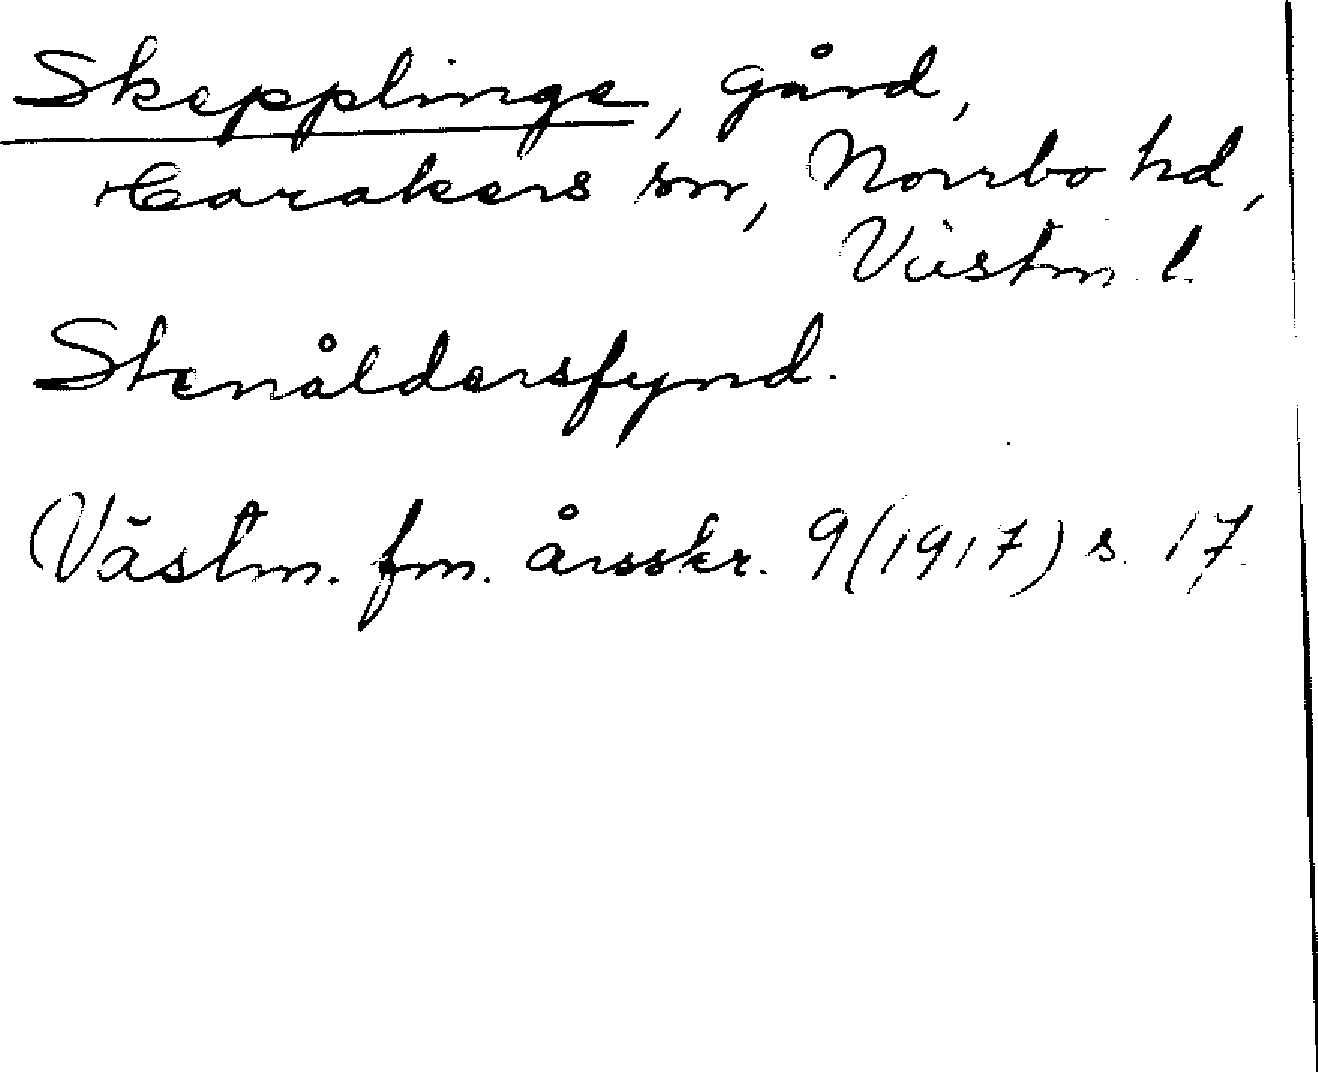 Skepplinge, gård,
Haraker s sn, Norrbo hd,
Västm. l.
Stenåldersfynd.
Västm. fm. årsskr. 9 (1917) s. 17.